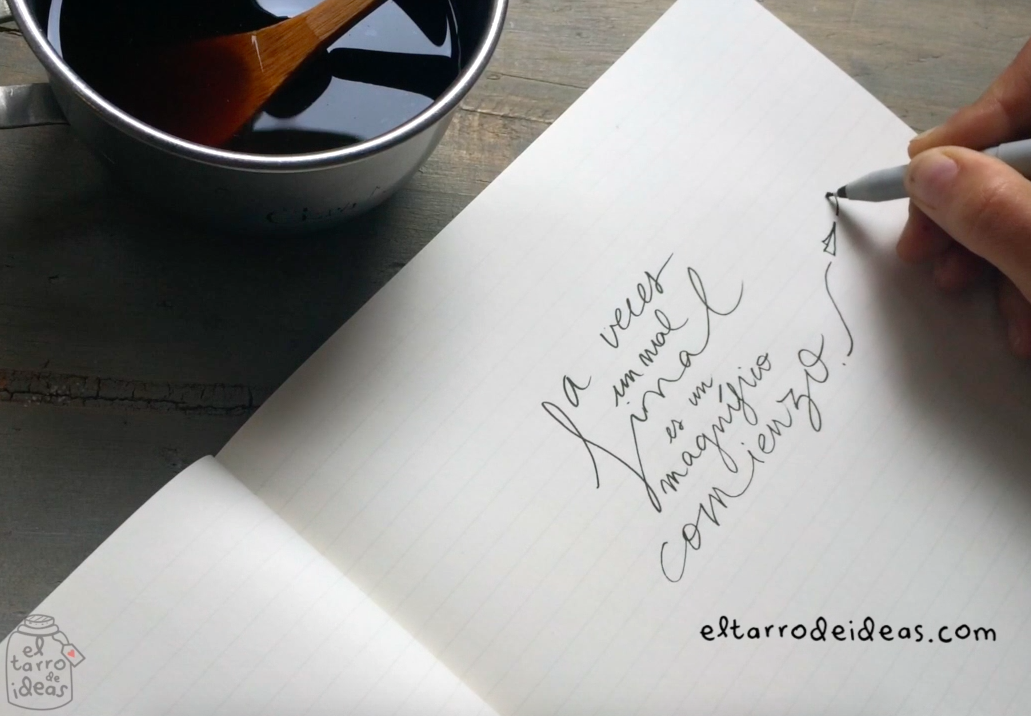 a veces
un mal
final
es un
magnífico
comienzo.
eltarrodeideas.com
el
tarro
de
ideas